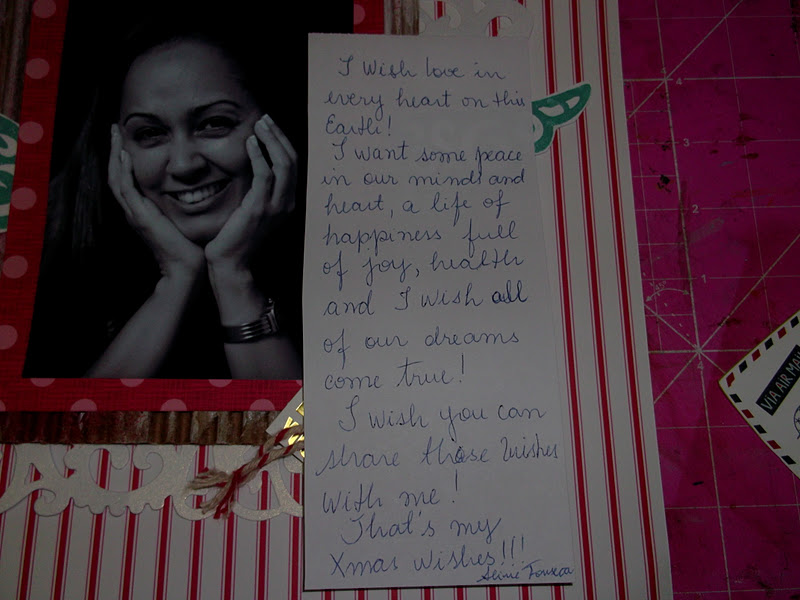 I Wish love in
every heart on this
Earth!
I want some peace
in our minds and
heart, a life of
happiness full
of joy, health
and I wish all
of our dreams
come true!
I wish you can
share those Wishes
with me!
That's my
Xmas wishes!!!
VIA AIR MAIL
4
3
2
1